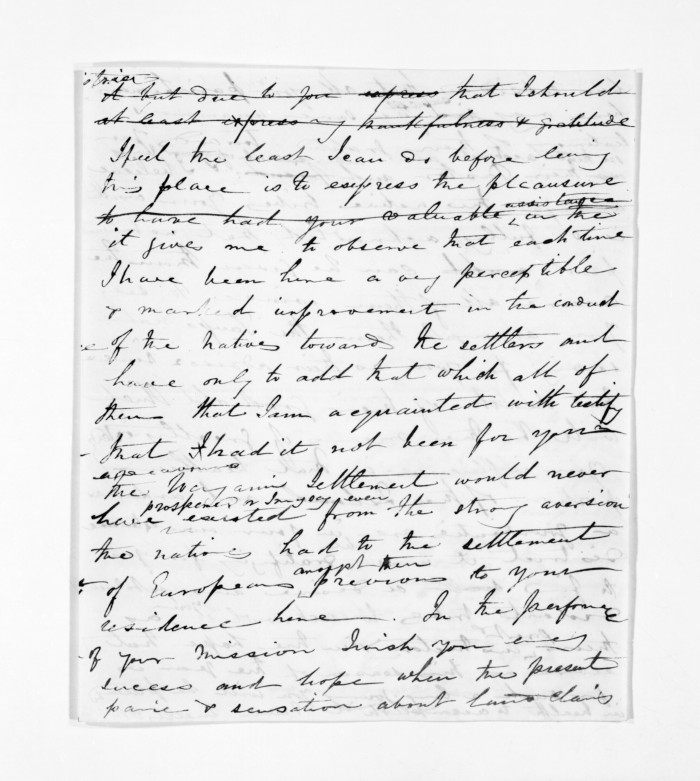 it but due to you express that I should
at least express my thankfulness & gratitude
I feel the least I can do before leaving
this place is to express the pleausure
to have had your valuable assistance in the
it gives me to observe that each time
I have been here a very perceptible
& marked improvement in the conduct
of the Natives towards the settlers and
have only to add that which all of
them that I am acquainted with testify
that I had it not been for your
the Settlement would never
prosperd or I may even
have existed from the strong aversion
the natives had to the settlement
of Europeans amongst them previous to your
residence here. In the performce
of your Mission I wish you every
success and hope when the present
panic & sensation about land claims